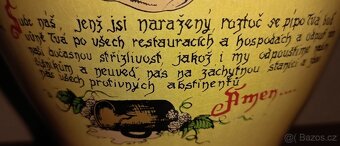 Sude náš jenž jsi naražený, roztoč se pípo Tvá buď
vůně Tvá po všech restauracích a hospodách a odpusť nám
naši dočasnou střízlivost, jakož i my odpouštíme našim
výčepníkům a neuveď nás na záchytnou stanici a
nás všech protivných abstinentů
Ámen....
Bazos.cz